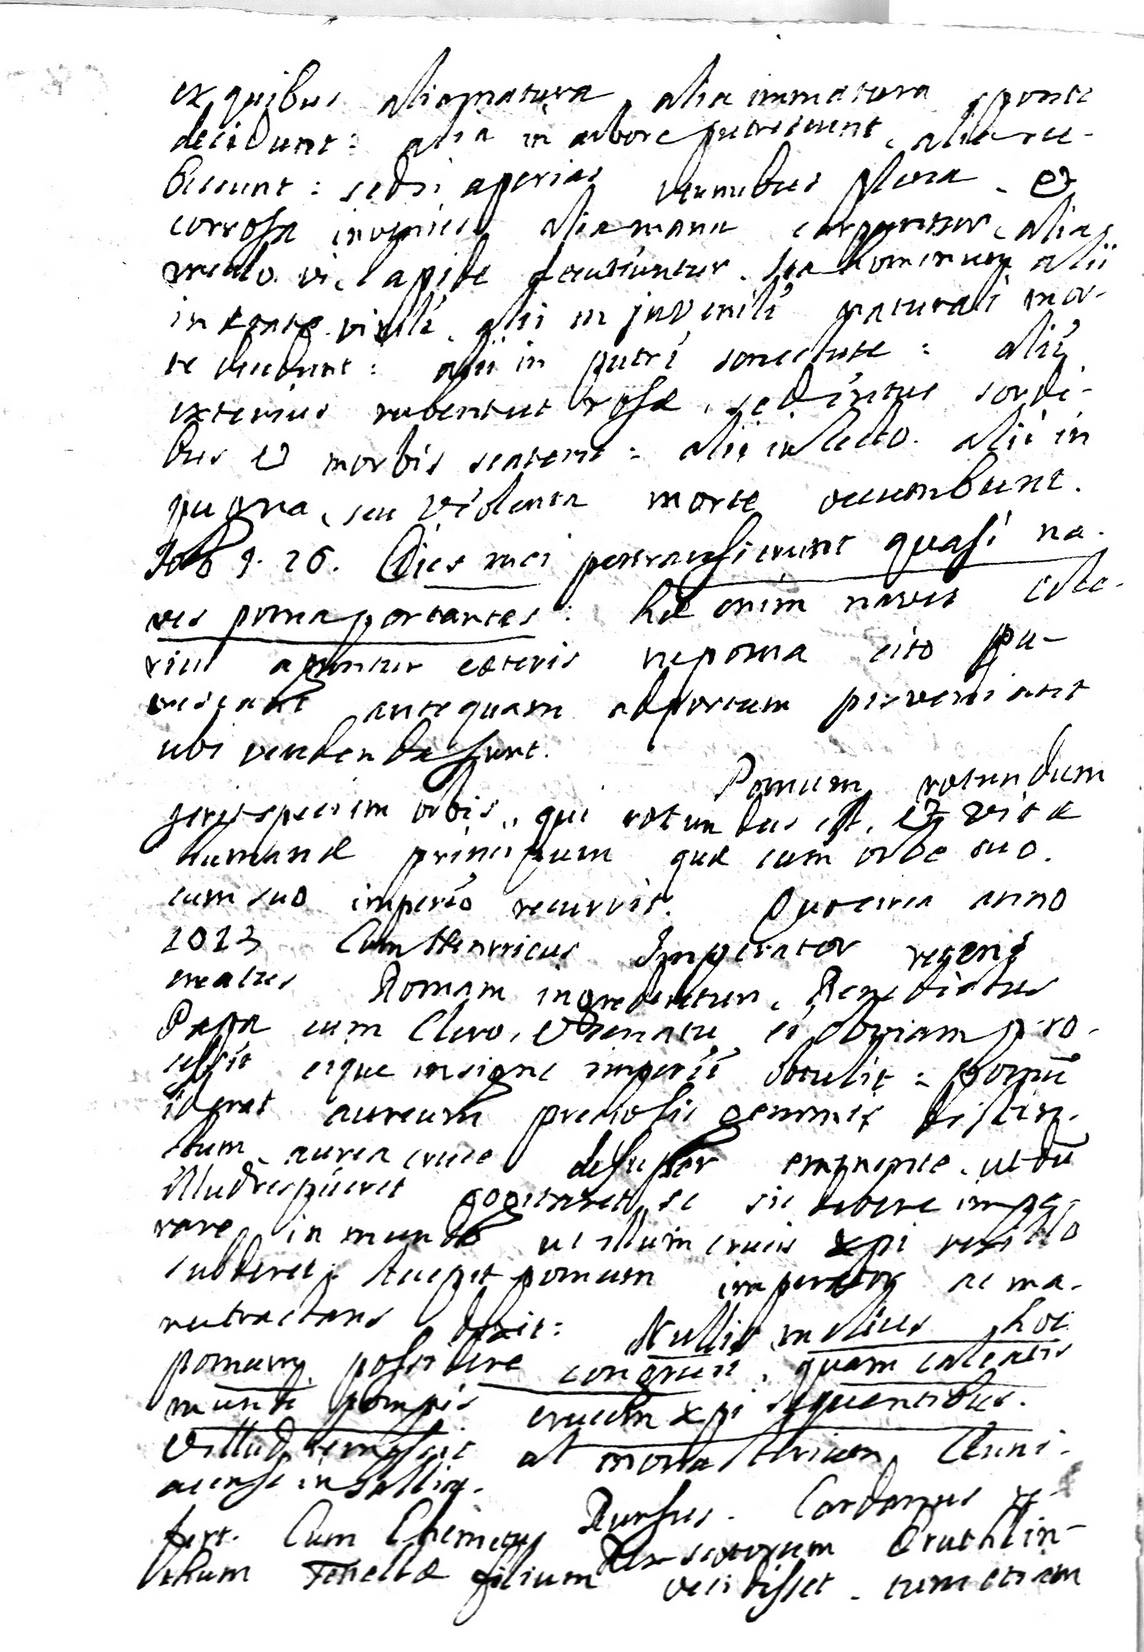 ex quibus alia matura alia immatura sponte
decidunt: alia in arbore putrescunt, alia ru-
bescunt: sed si aperias vermibus plena, &
corrosa invenies alia manu carpuntur, alia
vi, lapide decutiuntur. Ita hominum alii
in ætate virili, alii in juvenili naturali mor-
te decidunt: alii in putri senectute: alii
exterius rubent ut rosæ, sed intus sordi-
bus & morbis scatent: alii in lecto. alii in
pugna, seu violenta morte occumbunt.
Job 9. 26. Dies mei pertransierunt quasi na-
ves poma portantes: hæ enim naves cele-
rius aguntur cæteris ne poma cito pu-
trescant antequam ad portum perveniant
ubi vendenda sunt.
Pomum rotundum
gerit speciem orbis, qui rotundus est, & vitæ
humanæ principium quæ cum orbe suo.
cum suo imperio recurrit. Quocirca anno
1013 Cum Henricus Imperator recens
creatus Romam ingrederetur, Benedictus
Papa cum Clero, & Senatu ei obviam pro-
cessit eique insigne imperii obtulit: pomū
id erat aureum pretiosis gemmis distin-
ctum, aurea cruce desuper eminente, ut dū
illud respiceret cogitaret se sic debere impe-
rare in mundo ut illum crucis xpi vexillo
subderet; Accepit pomum imperator ac ma-
nu tractans dixit: Nullis melius hoc
pomum possidere congruit, quam calcatis
mundi pompis crucem xpi sequentibus.
& illud remisit ad monasterium Cluni-
acense in Gallia.
Rursus. Cardanus re-
fert. Cum Rex Scotorum Cruthlin-
thum filium occidisset, tum etiam